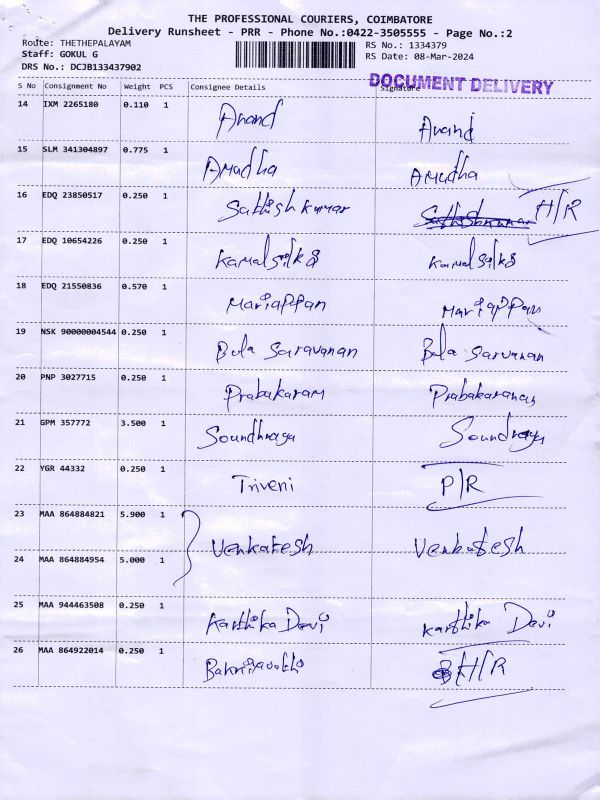 THE PROFESSIONAL COURIERS, COIMBATORE
Delivery Runsheet - PRR - Phone No.:0422-3505555 - Page No.:2
Route: THETHEPALAYAM RS No.: 1334379
Staff: GOKUL G RS Date: 08-Mar-2024
DRS No.: DCJB133437902 DOCUMENT DELIVERY
S No Consignment No Weight PCS Consignee Details Signature
14 IXM 2265180 0.110 1 Anand Anand
15 SLM 341304897 0.775 1 Amudha Amudha
16 EDQ 23850517 0.250 1 Sathish kumar Sathishkumar H/R
17 EDQ 10654226 0.250 1 Kamalsilks Kamalsilks
18 EDQ 21550836 0.570 1 Mariappan Mariappan
19 NSK 90000004544 0.250 1 Bala Saravanan Bala Sarvanan
20 PNP 3027715 0.250 1 Prabakaram Prabakaranan
21 GPM 357772 3.500 1 Soundhraya Soundraya
22 YGR 44332 0.250 1 Triveni P/R
23 MAA 864884821 5.900 1 Venkatesh Venkatesh
24 MAA 864884954 5.000 1
25 MAA 944463508 0.250 1 Karthika Devi Karthika Devi
26 MAA 864922014 0.250 1 H/R